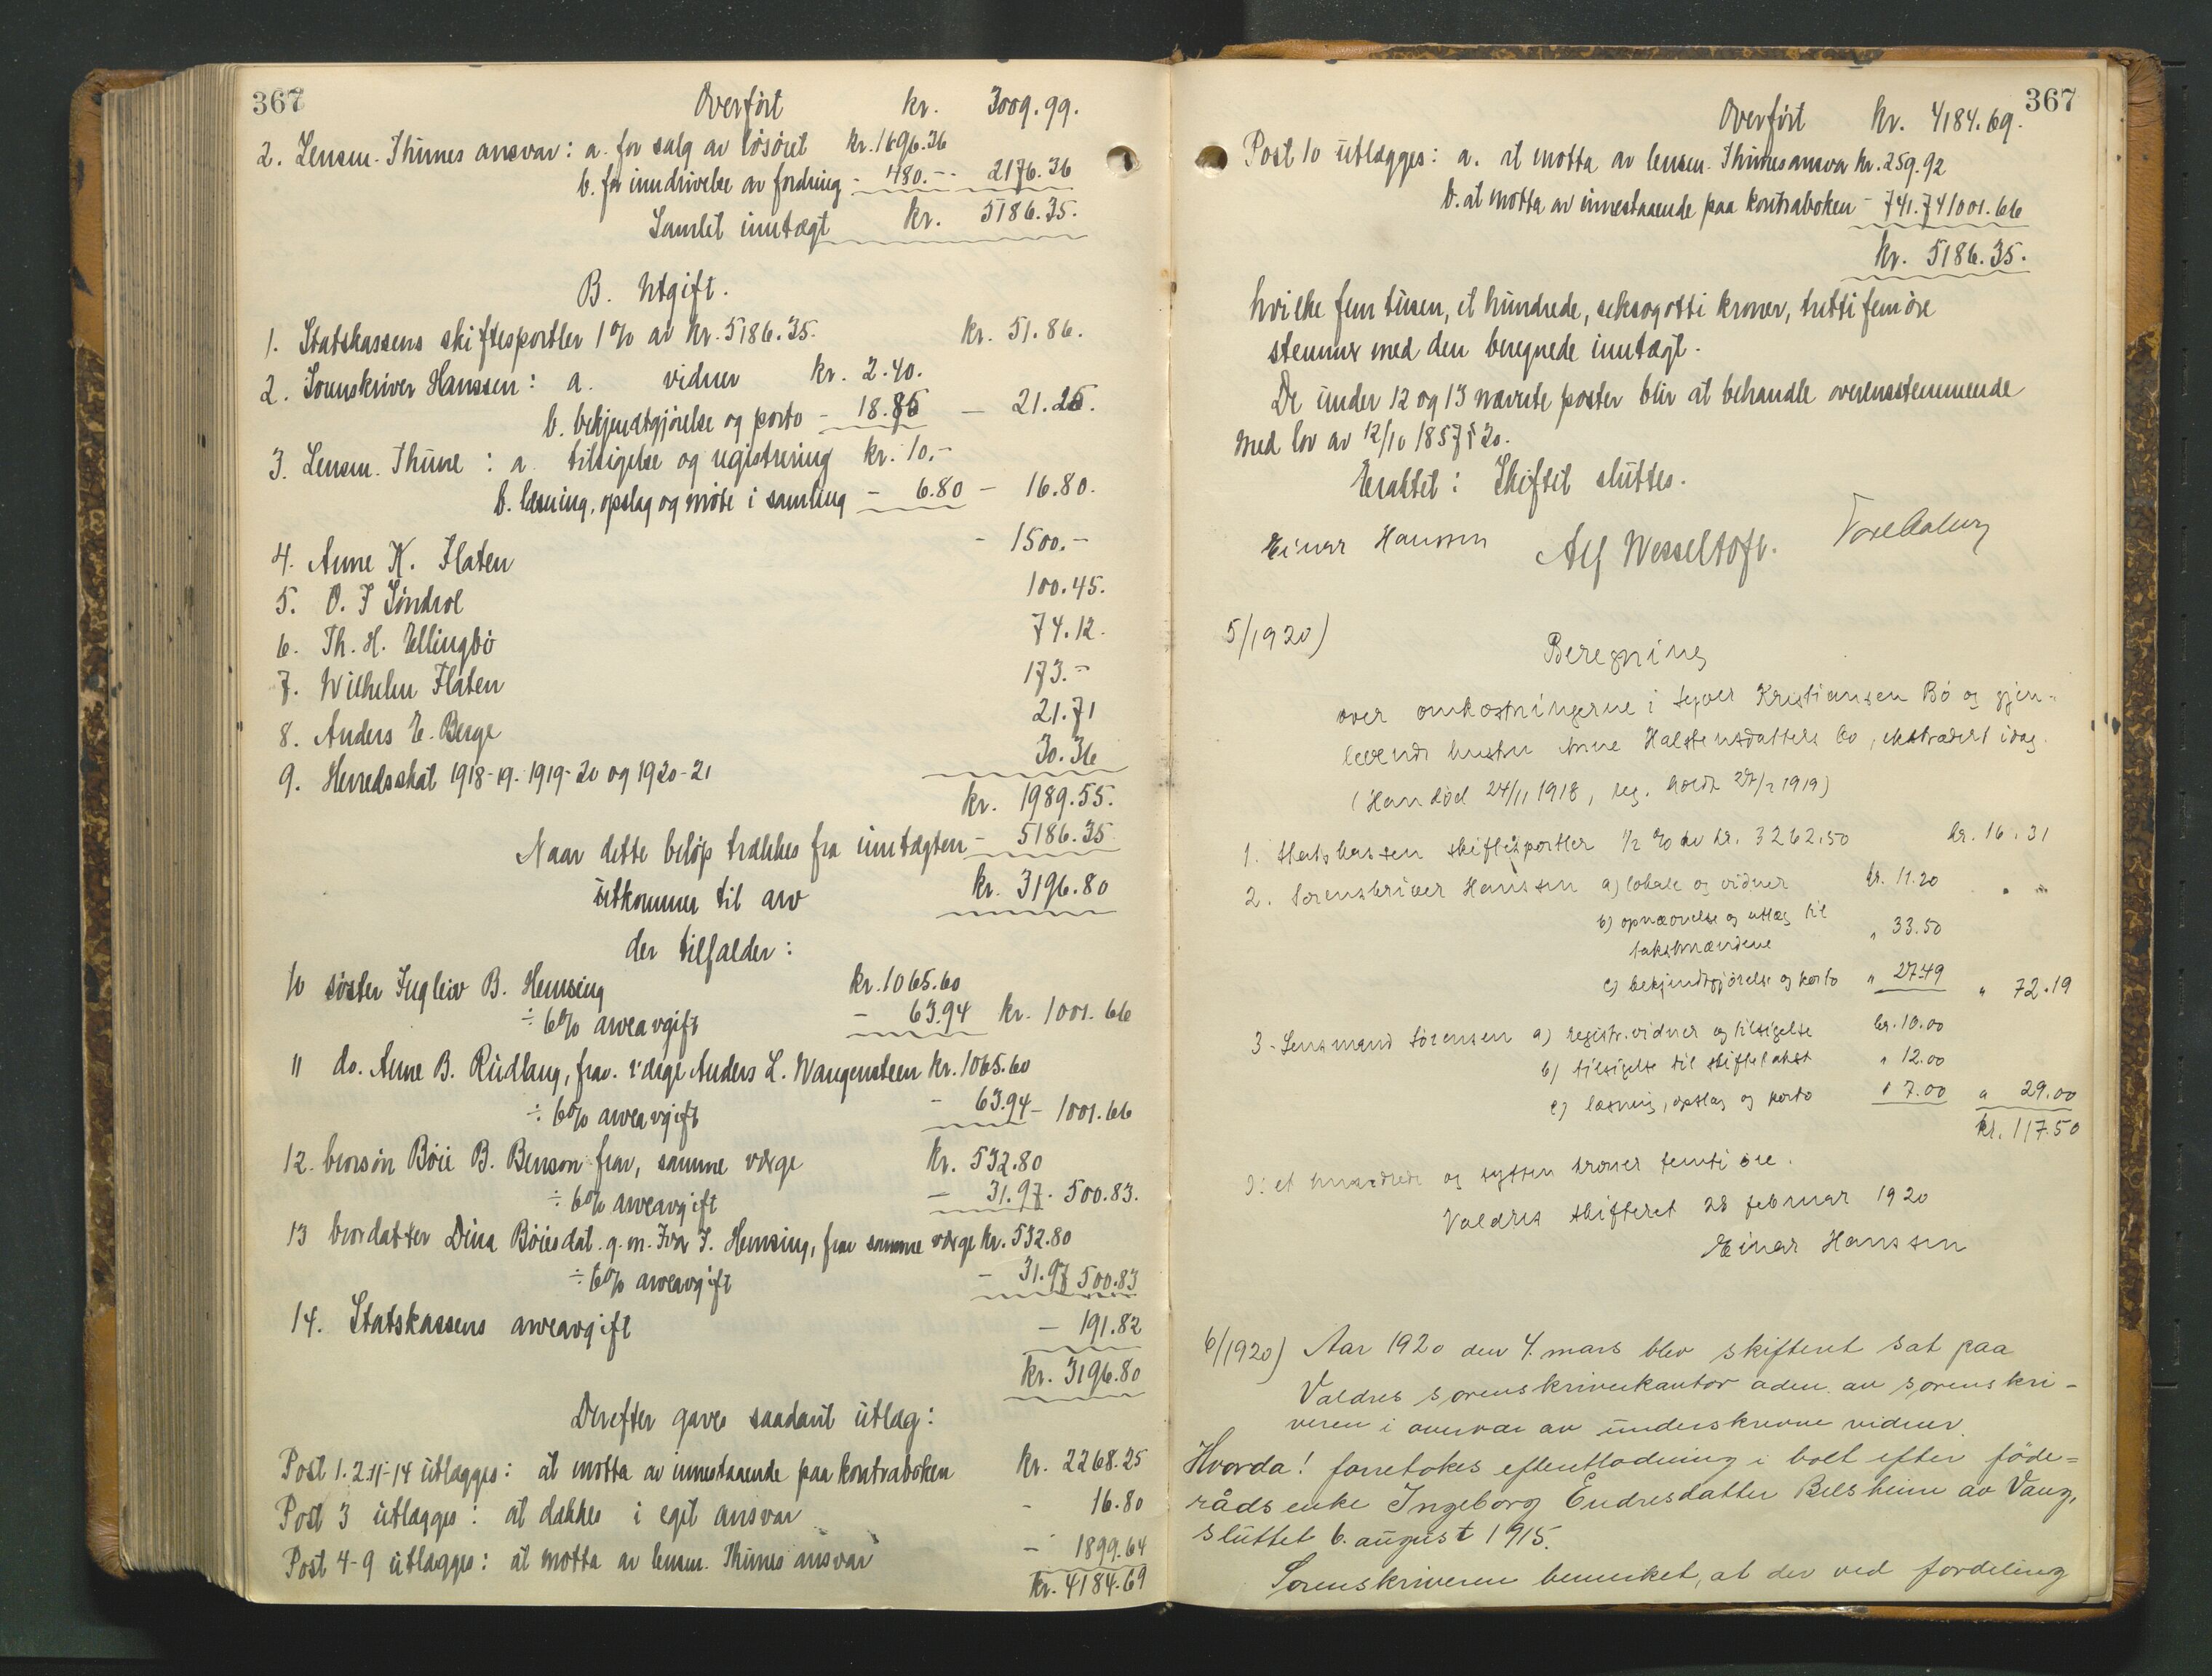 367
Overført kr. 3009.99.
2. Lensm. Thunes ansvar: a. for salg av løsøret kr. 1696.36
b. for inndrivelse av fordring - 480.-- 2176.36
Samlet inntægt kr. 5186.35.
B. Utgift.
1. Statskassens skiftesportler 1% av kr. 5186.35. kr. 51.86.
2. Sorenskriver Hanssen: a. vidner kr. 2.40.
b. bekjendtgjørelse og porto - 18.85 - 21.25.
3. Lensm. Thune: a. tilsigelse og registrering kr. 10.-
b. læsning, opslag og møte i samling - 6.80 - 16.80.
4. Anne K. Flaten - 1500.-
5. O. J Søndrol 100.45.
6. Th. H. Ellingbø 74.12.
7. Wilhelm Flaten 173.-
8. Anders E. Berge 21.71
9. Herredsskat 1918-19-1919-20 og 1920-21 30.36
kr. 1989.55.
Naar dette beløp trækkes fra inntægten - 5186.35
utkommer til arv kr. 3196.80
der tilfalder:
10 søster Ingleiv B. Hemsing kr. 1065.60
÷ 6% arveavgift - 63.94 kr. 1001.66
11 do. Anne B. Rudlang, frav. værge Anders L. Wangensteen kr. 1065.60
÷ 6% arveavgift - 63.94 - 1001.66
12. brorsøn Böie B. Benson frav, samme værge kr. 532.80
÷ 6% arveavgift - 31.97. 500.83.
13 brordatter Dina Böiesdat. g.m. Ivar J. Hemsing, frav samme værge kr. 532.80
÷ 6% arveavgift - 31.97 500.83
14. Statskassens arveavgift - 191.82
kr. 3196.80
Derefter gaves saadant utlæg:
Post 1.2.11-14 utlægges: at motta av innestaaende paa kontraboken kr. 2268.25
Post 3 utlægges: at dækkes i eget ansvar - 16.80
Post 4-9 utlægges: at motta av lensm. Thunes ansvar - 1899.64
kr. 4184.69
367
Overført kr. 4184.69.
Post 10 utlægges: a. at motta av lensm. Thunes ansva kr. 259.92
b. at motta av innestaaende paa kontraboken - 741.74 1001.66
kr. 5186.35.
hvilke fem tusen, et hundrede, seksogotti kroner, trettifem øre
stemmer med den beregnede inntægt.
De under 12 og 13 nævnte poster blir at behandle overensstemmende
med lov av 12/10 1857 § 20.
Eraktet: Skiftet sluttes.
Einar Hanssen Alf Wesseltoft.
5/1920) Beregning
over omkostningerne i Sjver Kristiansen Bø og gjen-
levende hustru Anne Halstensdatters bo, ekstradert idag.
(Han død 24/11 1918, reg. holdt 27/2 1919)
1. Statskassen skiftesportler 1/2 % av kr. 3262,50 kr. 16.31
2. Sorenskriver Hanssen a) lokale og vidner kr. 11.20
b) opnævnelse og utlæg til
takstmændene " 33.50
c) bekjendtgjørelse og porto " 27.49 " 72.19
3. Lensmand Sørensen a) registr. vidner og tilsigelse kr. 10.00
b) tilsigelse til skiftetakst " 12.00
c) læsning, opslag og porto " 7.00 " 29.00
kr. 117.50
ɔ: et hundrede og sytten kroner femti øre.
Valdres skifteret 28 februar 1920
Einar Hanssen
6/1920) Aar 1920 den 4. mars blev skifteret sat paa
Valdres sorenskriverkontor adm. av sorenskri-
veren i overvær av underskrevne vidner.
Hvorda! foretokes efterutlodning i boet efter føde-
råds enke Ingeborg Endresdatter Belsheim av Vang,
sluttet 6. august 1915.
Sorenskriveren bemerket, at der ved fordeling